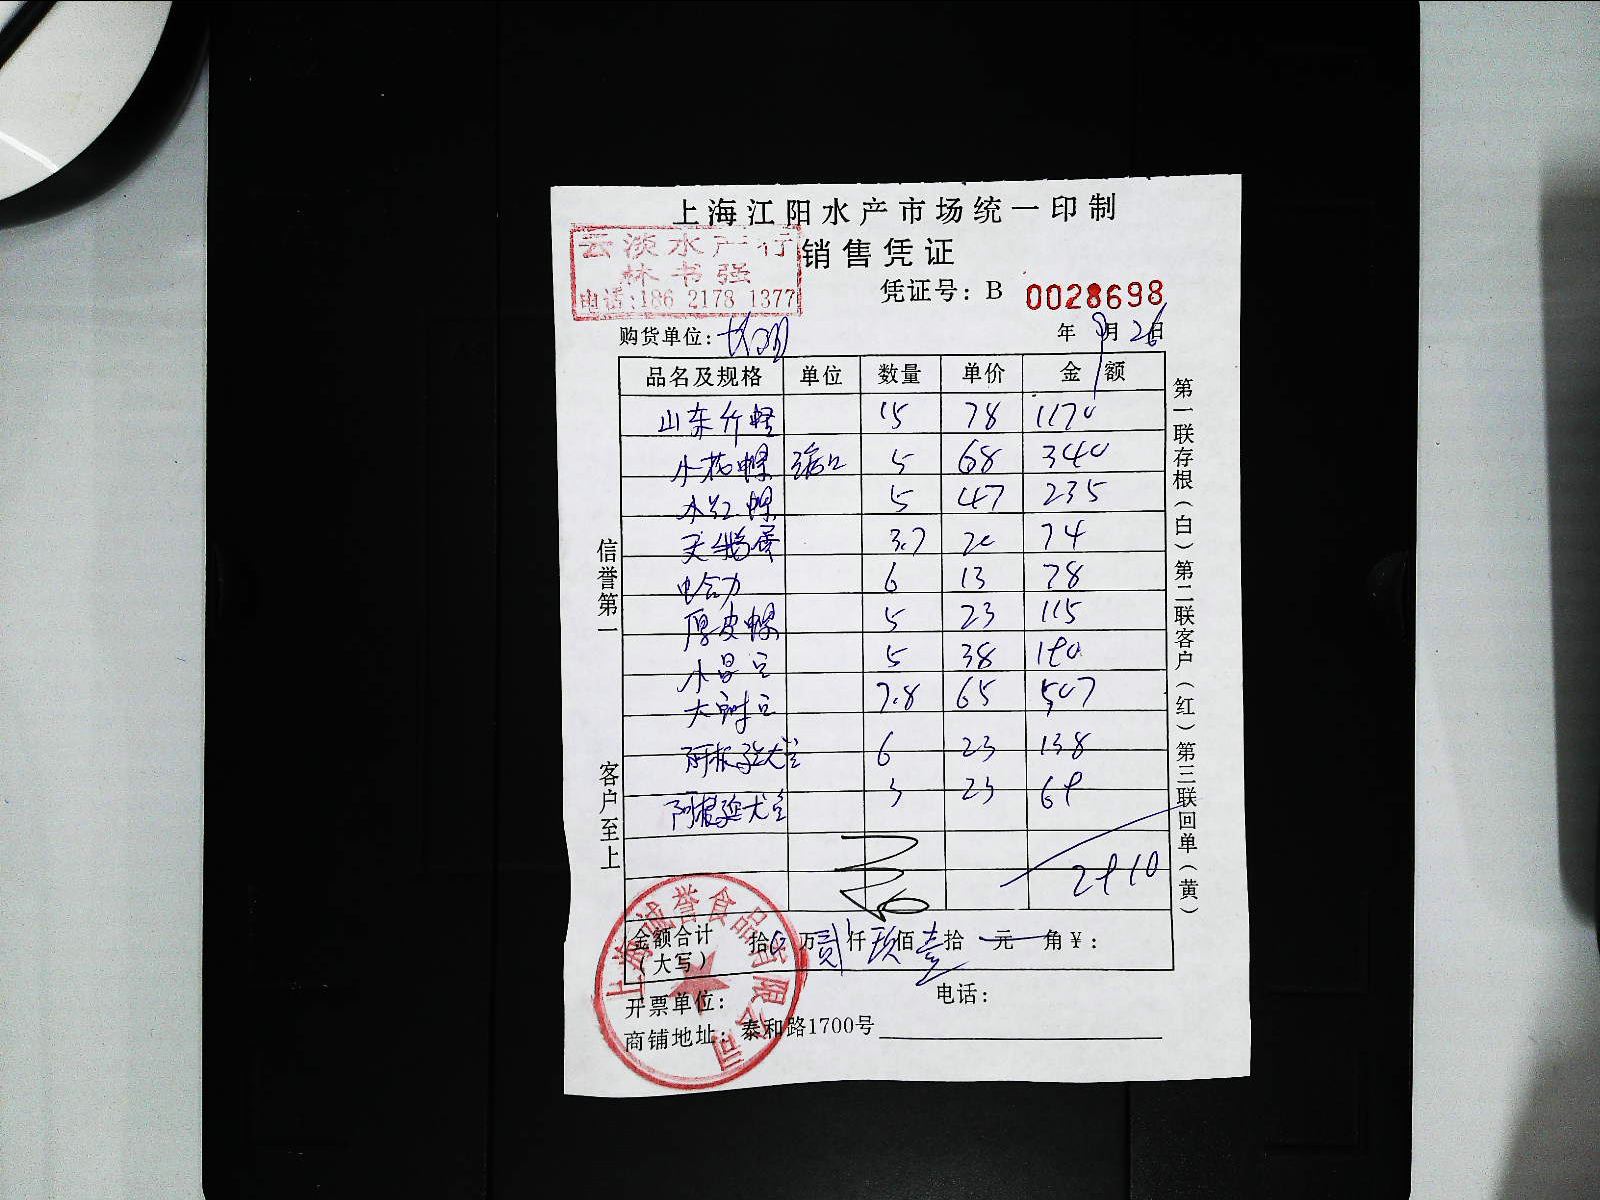 上海江阳水产市场统一印制
云淡水产行
林书强
电话:186 2178 1377
销售凭证
凭证号：B 0028698
购货单位：
年 9月 26日
品名及规格 单位 数量 单价 金额
山东 15 78 1170
小花螺 5 68 340
水红螺 5 47 235
天鹅蛋 3.7 20 74
6 13 78
厚皮螺 5 23 115
小 5 38 190
大 7.8 65 507
6 23 138
阿根廷 3 23 69
2910
金额合计（大写） 拾 万 贰 仟 玖 佰 壹 拾 元 角 ￥：
开票单位：
电话：
商铺地址：泰和路1700号
上海诚誉食品有限公司
信誉第一
客户至上
第一联存根（白）第二联客户（红）第三联回单（黄）